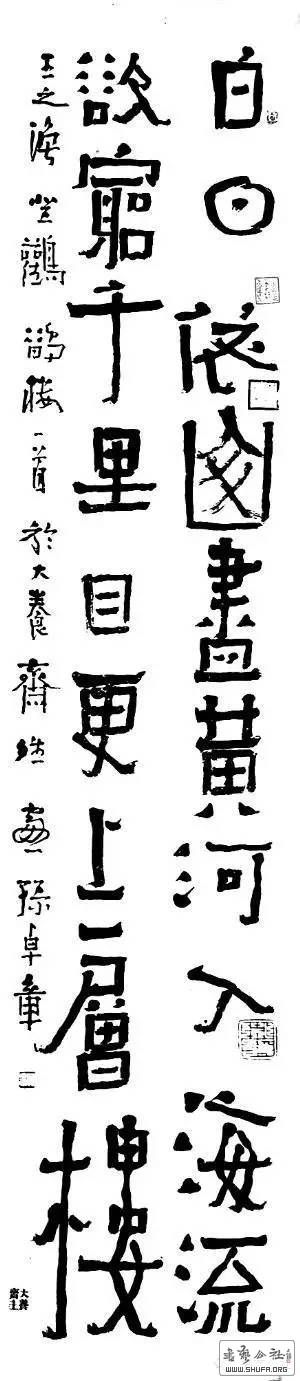 白日依山盡黃河入海流
欲窮千里目更上一層樓
王之渙登鸛鵲樓一首於大養齋 孫卓章
大養齋主
书艺公社
WWW.SHUFA.ORG